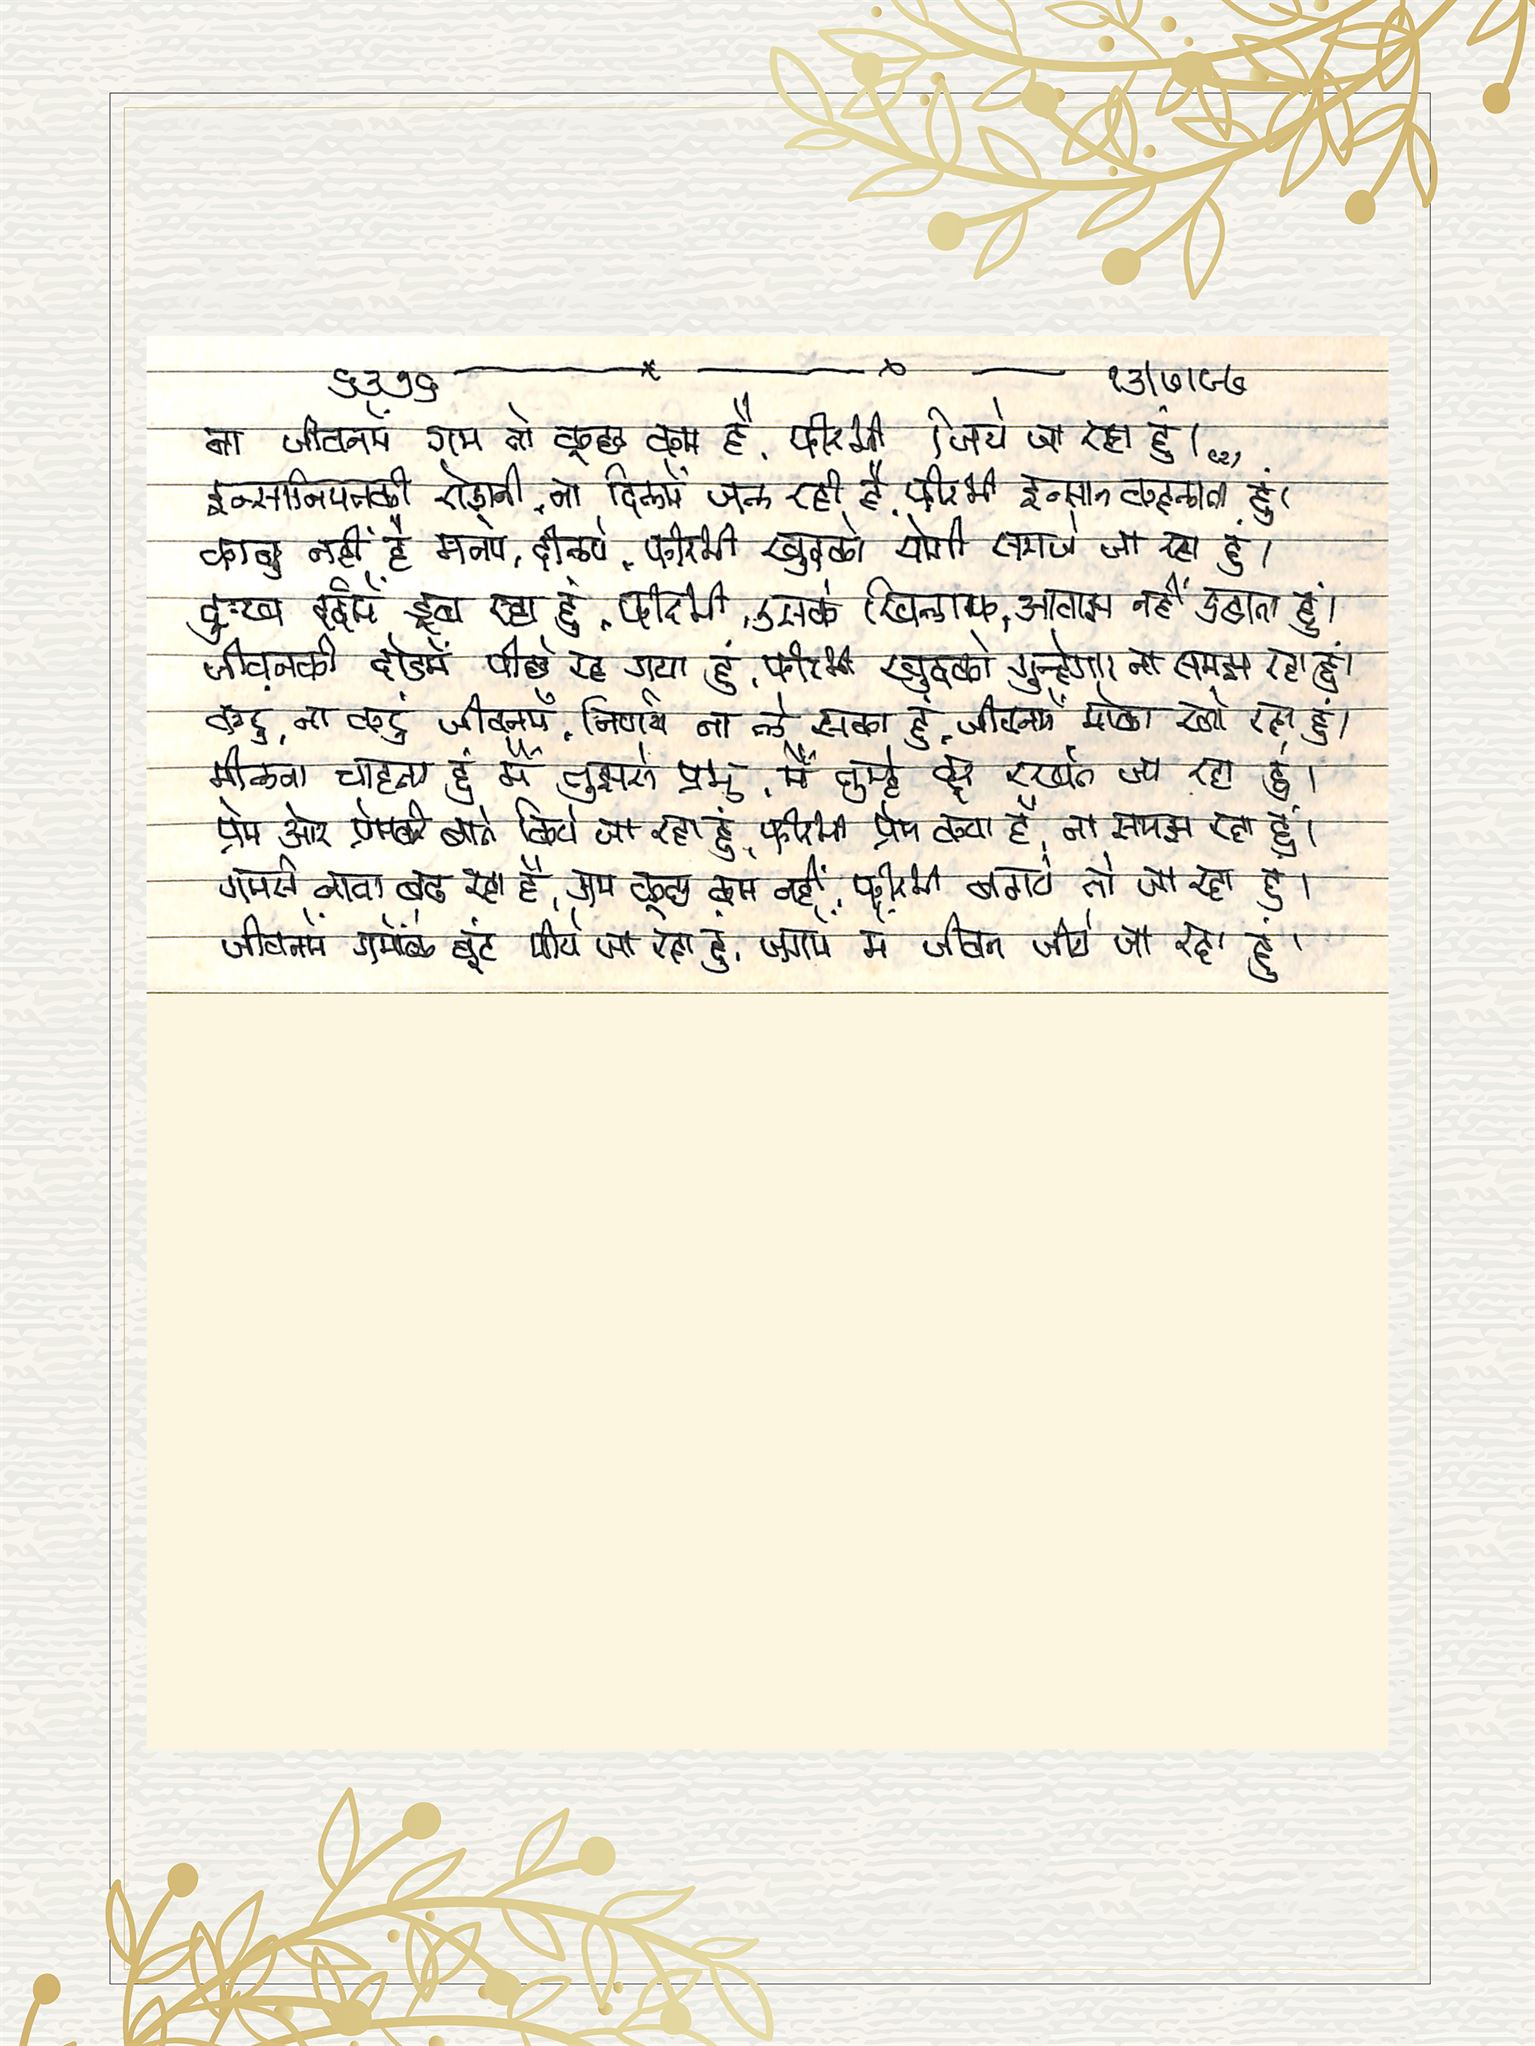 ५३१५ १३/७/८७
ना जीवनमें ग़म तो कुछ कम है, फीरभी जिये जा रहा हुं। (२)
इन्सानियतकी रोशनी, ना दिलमें जल रही है, फीरभी इन्सान कहलाता हुं।
काबु नहीं है मनपे, दीलपे, फीरभी खुदको योगी समजे जा रहा हुं।
दुःख दर्दमें डूब रहा हुं, फीरभी, उसके खिलाफ, आवाझ नहीं उठाता हुं।
जीवनकी दोडमें पीछे रह गया हुं, फीरभी खुदको गुन्हेगार ना समझ रहा हुं।
करुं, ना करुं जीवनमें, निर्णय ना ले सका हुं, जीवनमें मोका खो रहा हुं।
मीलना चाहता हुं मैं तुझसे प्रभु, मैं तुम्हे दूर रखते जा रहा हुं।
प्रेम ओर प्रेमकी बाते किये जा रहा हुं, फीरभी प्रेम क्या है, ना समझ रहा हुं।
ग़मसे नाता बढ रहा है, ग़म कुछ कम नहीं, फीरभी बनाये तो जा रहा हुं।
जीवनमें ग़मोंके घूंट पीये जा रहा हुं, जगमें में जीवन जीये जा रहा हुं।